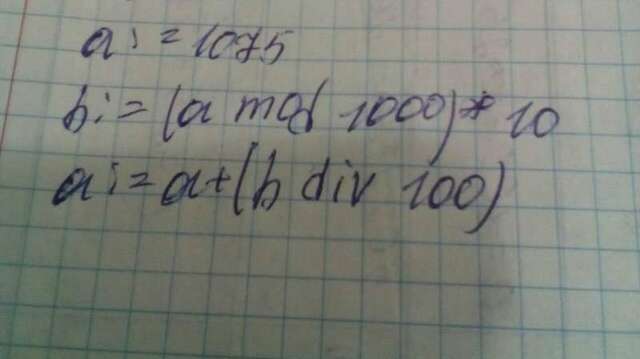 a:=1075
b:=(a mod 1000)*10
a:=a+(b div 100)